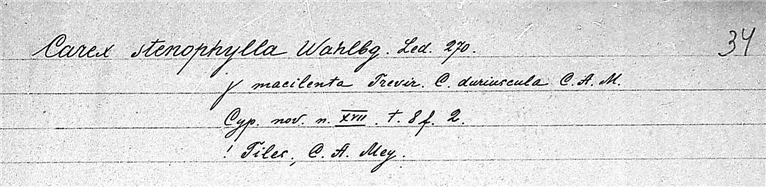 Carex stenophylla Wahlbg. Led. 270. 34
γ macilenta Trevir. C. duriuscula C. A. M.
Cyp. nov. n. XVII. t. 8 f. 2.
! Tiles, C. A. Mey.